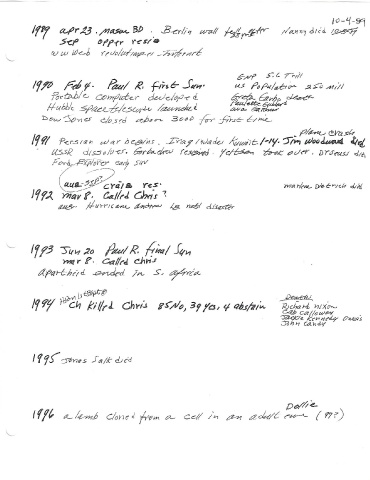 10-4-89
1989 apr 23. mason BD. Berlin wall fell after Nancy died
Sep opper resig
WWWeb revolutionizes Internet
GNP 5.6 Trill
1990 Feb 4. Paul R. first Sun. US Population 250 mill
Portable computer developed Greta Garbo death
Hubble space telescope launched Paulette Goddard
Dow Jones closed above 3000 for first time ava Gardner
plane crash
1991 Persian war begins. Iraq invades Kuwait 1-14. Jim Woodward died
USSR dissolves. Gorbachev resigned. Yeltson took over. Dr Seuss dih
Ford Explorer early SUV
aug-sep? craig res. marlene Dietrich died
1992 mar 8. Called Chris?
aug. Hurricane andrew La natl disaster
1993 Jun 20 Paul R. final Sun
mar 8. Called Chris
apartheid ended in S. africa
1994 Ch Killed Chris 85 No, 39 yes, 4 abstain
Deaths
Richard Nixon
Cab Calloway
Jackie Kennedy Onasis
John Candy
1995 Jonas Salk died
Dollie
1996 a lamb cloned from a cell in an adult ewe (97?)